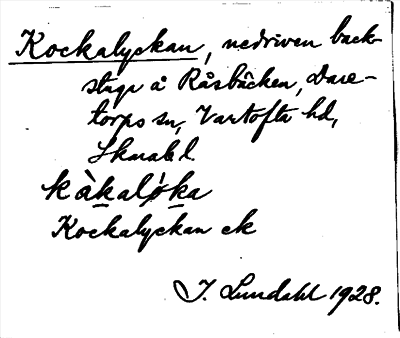 Kockalyckan, nedriven back-
stuga å Råsbäcken, Dare-
torps sn, Vartofta hd,
Skarab l.
kàkalỏka
Kockalyckan ek
J. Lundahl 1928.